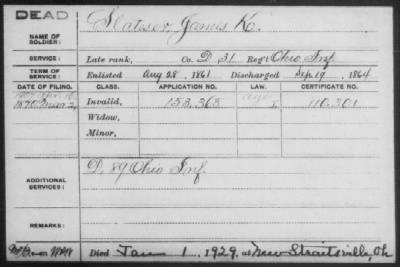 DEAD
NAME OF SOLDIER: Slatser, James K.
SERVICE: Late rank, Co. D 31 Reg't Ohio Inf
TERM OF SERVICE: Enlisted Aug 28, 1861 Discharged Sep 19, 1864
DATE OF FILING. CLASS. APPLICATION NO. LAW. CERTIFICATE NO.
1870 Invalid, 153,368 110,301
Widow,
Minor,
ADDITIONAL SERVICES: D. 89 Ohio Inf.
REMARKS:
Died Jan 1, 1929, at New Straitsville, Oh